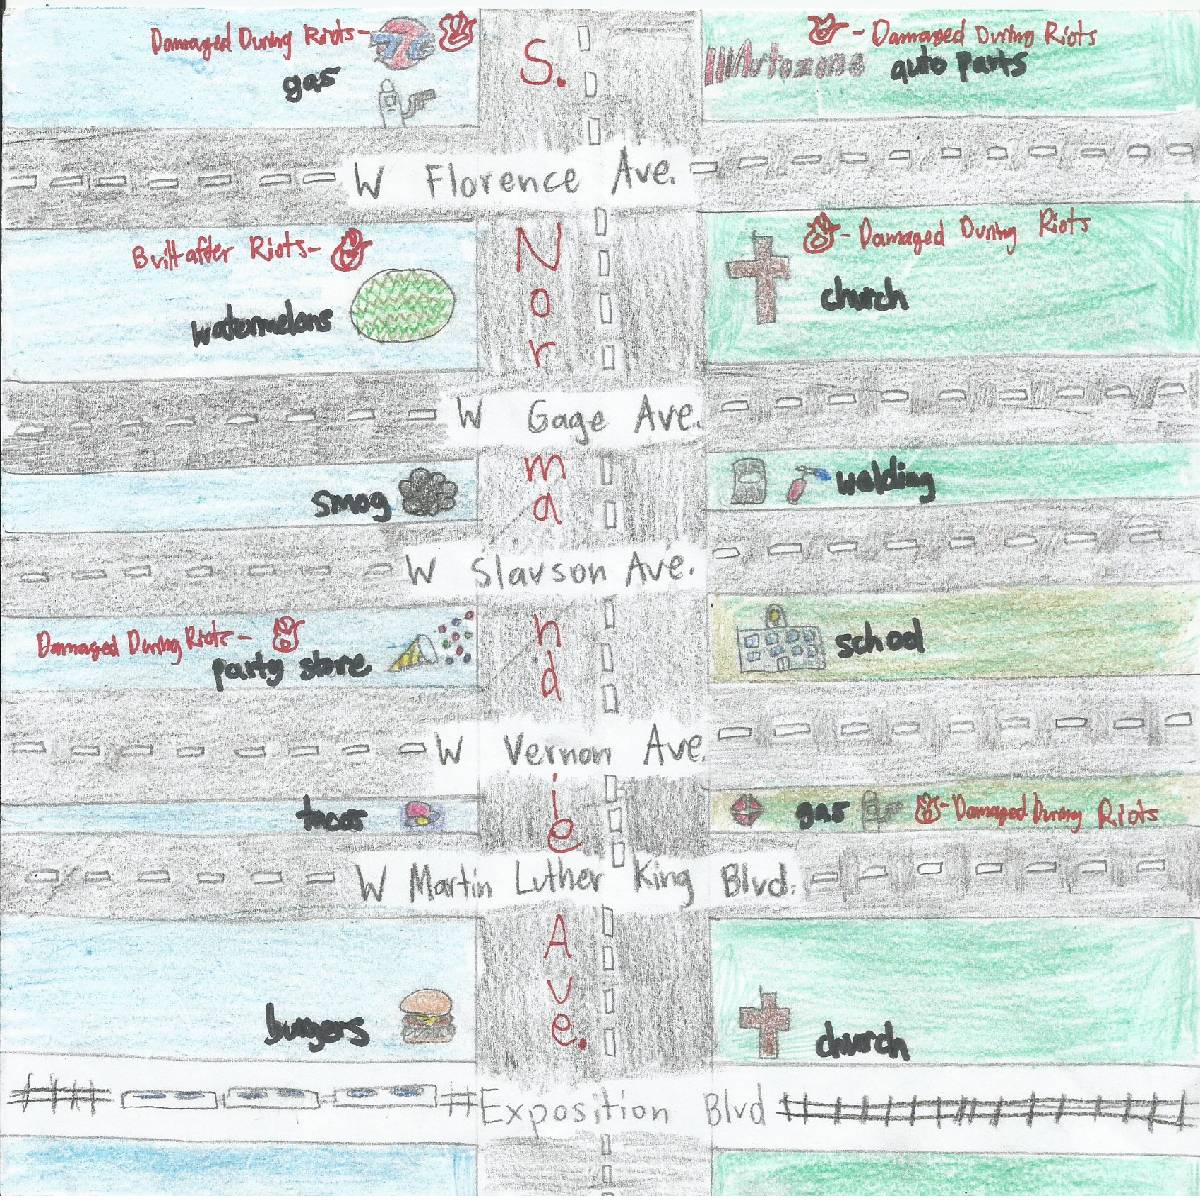 Damaged During Riots-
gas
S.
- Damaged During Riots
Autozone auto parts
W Florence Ave.
Built after Riots-
watermelons
Normandie Ave.
- Damaged During Riots
church
W Gage Ave.
smog
welding
W Slauson Ave.
Damaged During Riots-
party store
school
W Vernon Ave.
tacos
gas
-Damaged During Riots
W Martin Luther King Blvd.
burgers
church
Exposition Blvd